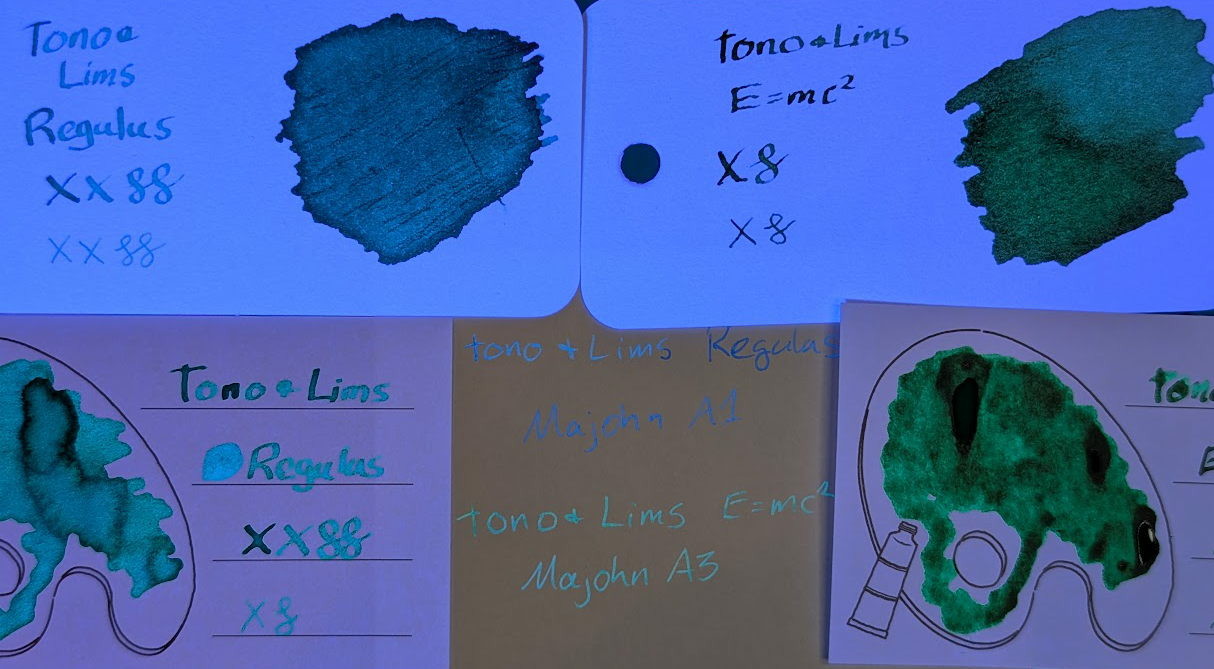 Tono &
Lims
Regulus
X X 88
X X 88
Tono & Lims
E=mc²
X 8
X 8
Tono & Lims
Regulus
X X 88
X 8
tono & Lims Regulus
Majohn A1
tono & Lims E=mc²
Majohn A3